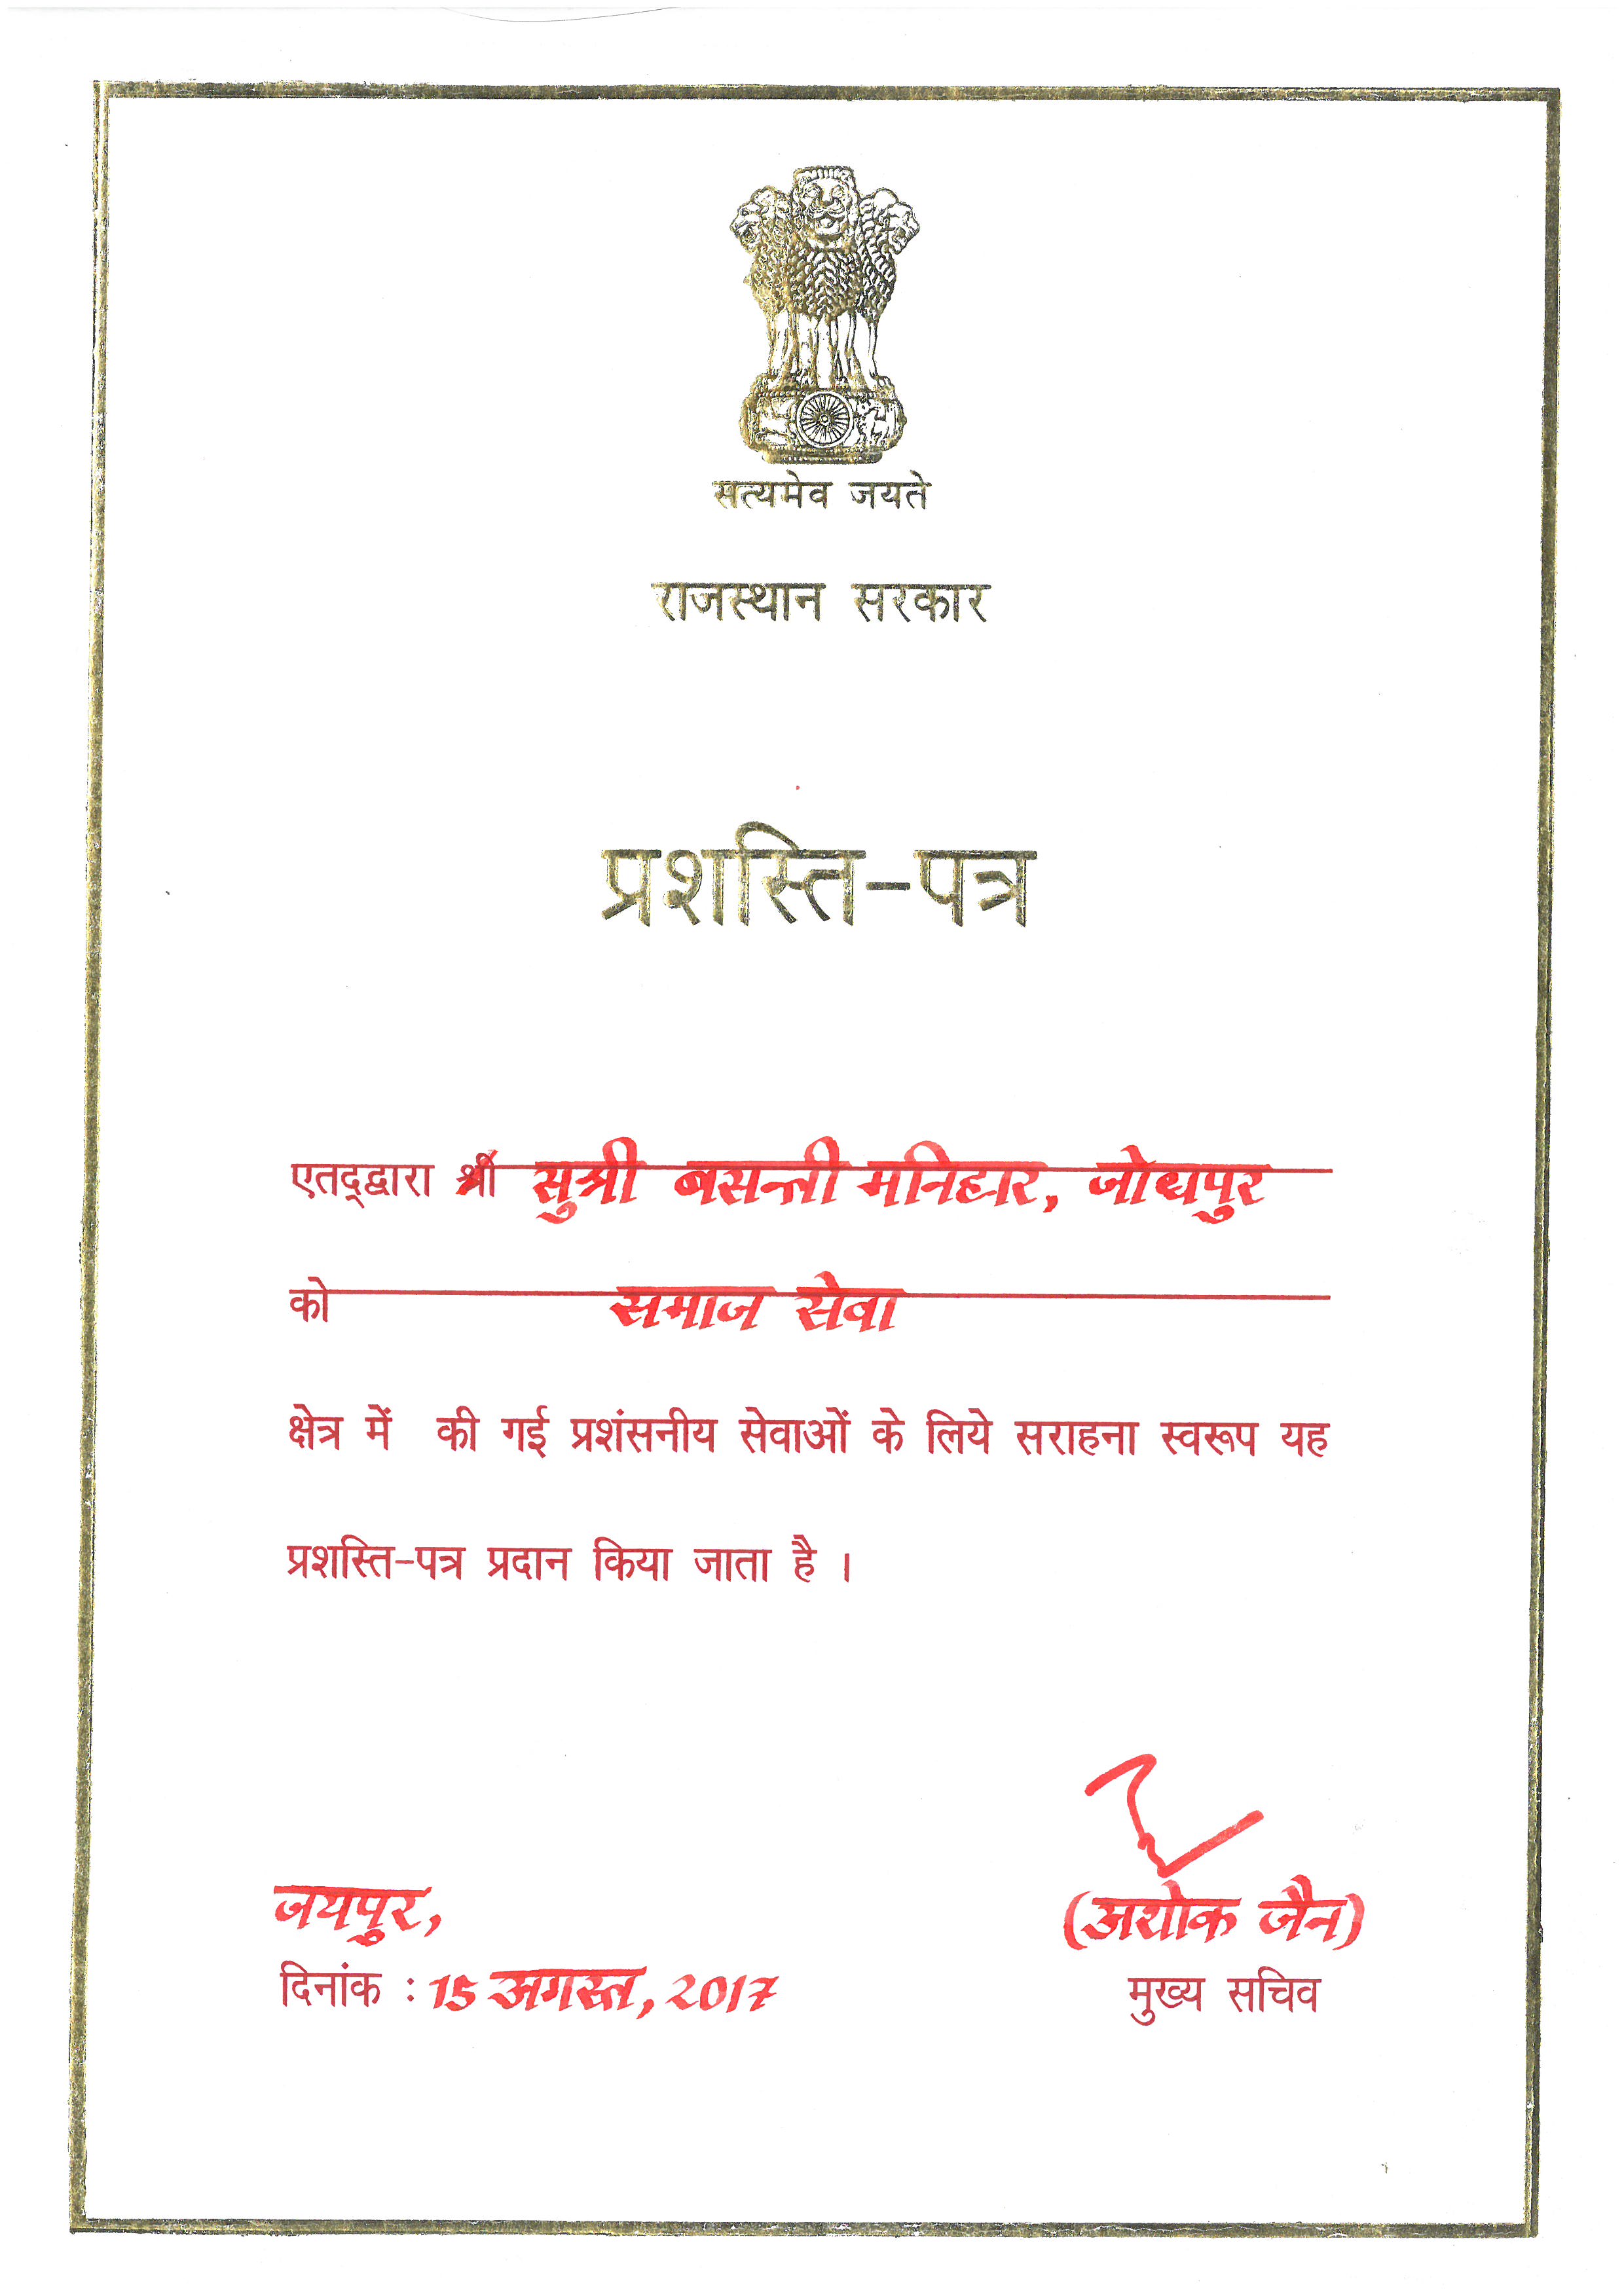 सत्यमेव जयते
राजस्थान सरकार
प्रशस्ति-पत्र
एतद्द्वारा श्री सुश्री बसन्ती मनिहार, जोधपुर
को समाज सेवा
क्षेत्र में की गई प्रशंसनीय सेवाओं के लिये सराहना स्वरूप यह
प्रशस्ति-पत्र प्रदान किया जाता है ।
जयपुर,
(अशोक जैन)
दिनांक : 15 अगस्त, 2017
मुख्य सचिव